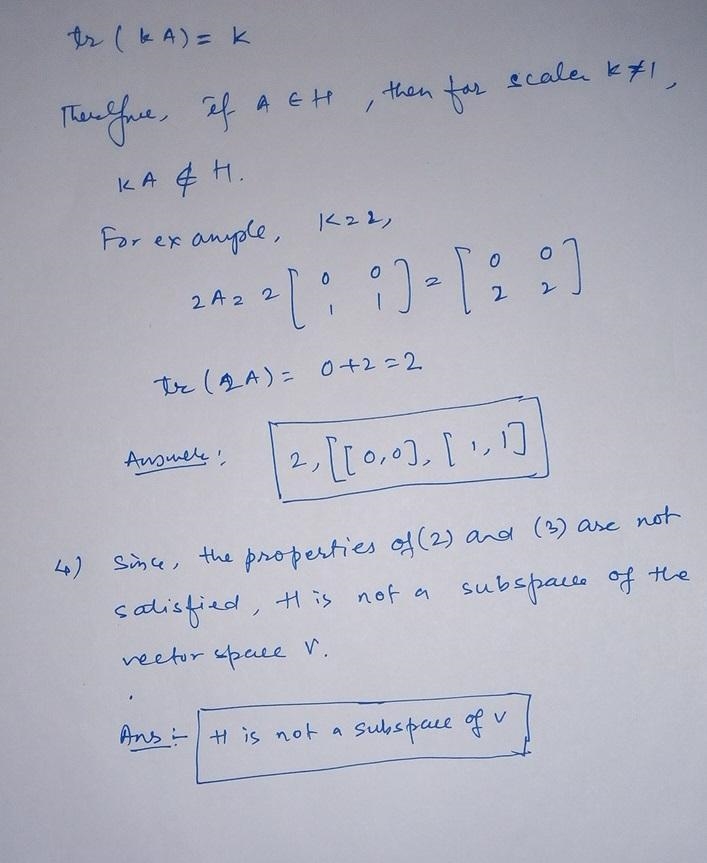 tr (kA) = k
Therefore, if A ∈ H, then for scalar k≠1,
kA ∉ H.
For example, k=2,
2A = 2 [0 0; 1 1] = [0 0; 2 2]
tr (2A) = 0+2=2
Answer: 2, [[0,0], [1,1]
4) Since, the properties of (2) and (3) are not
satisfied, H is not a subspace of the
vector space V.
Ans :- H is not a subspace of V